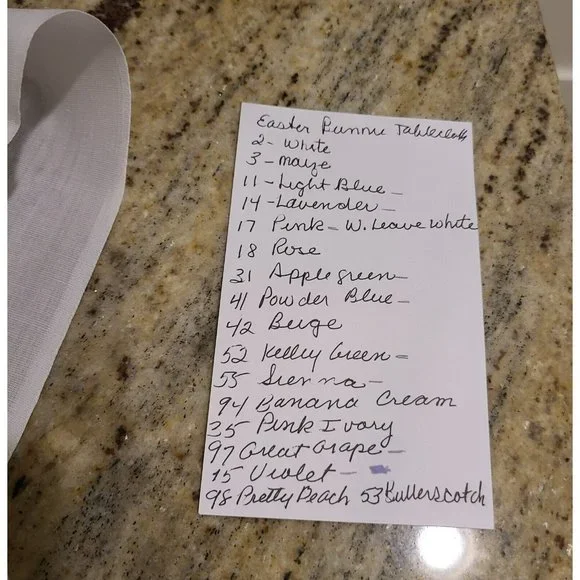 Easter Bunnie Tablecloth
2- White
3- maze
11 - Light Blue -
14 - Lavender -
17 Pink - W. Leave White
18 Rose
31 Apple green -
41 Powder Blue -
42 Beige
52 Kelley Green =
55 Sienna -
94 Banana Cream
35 Pink Ivory
97 Great Grape -
15 Violet -
98 Pretty Peach 53 Butterscotch